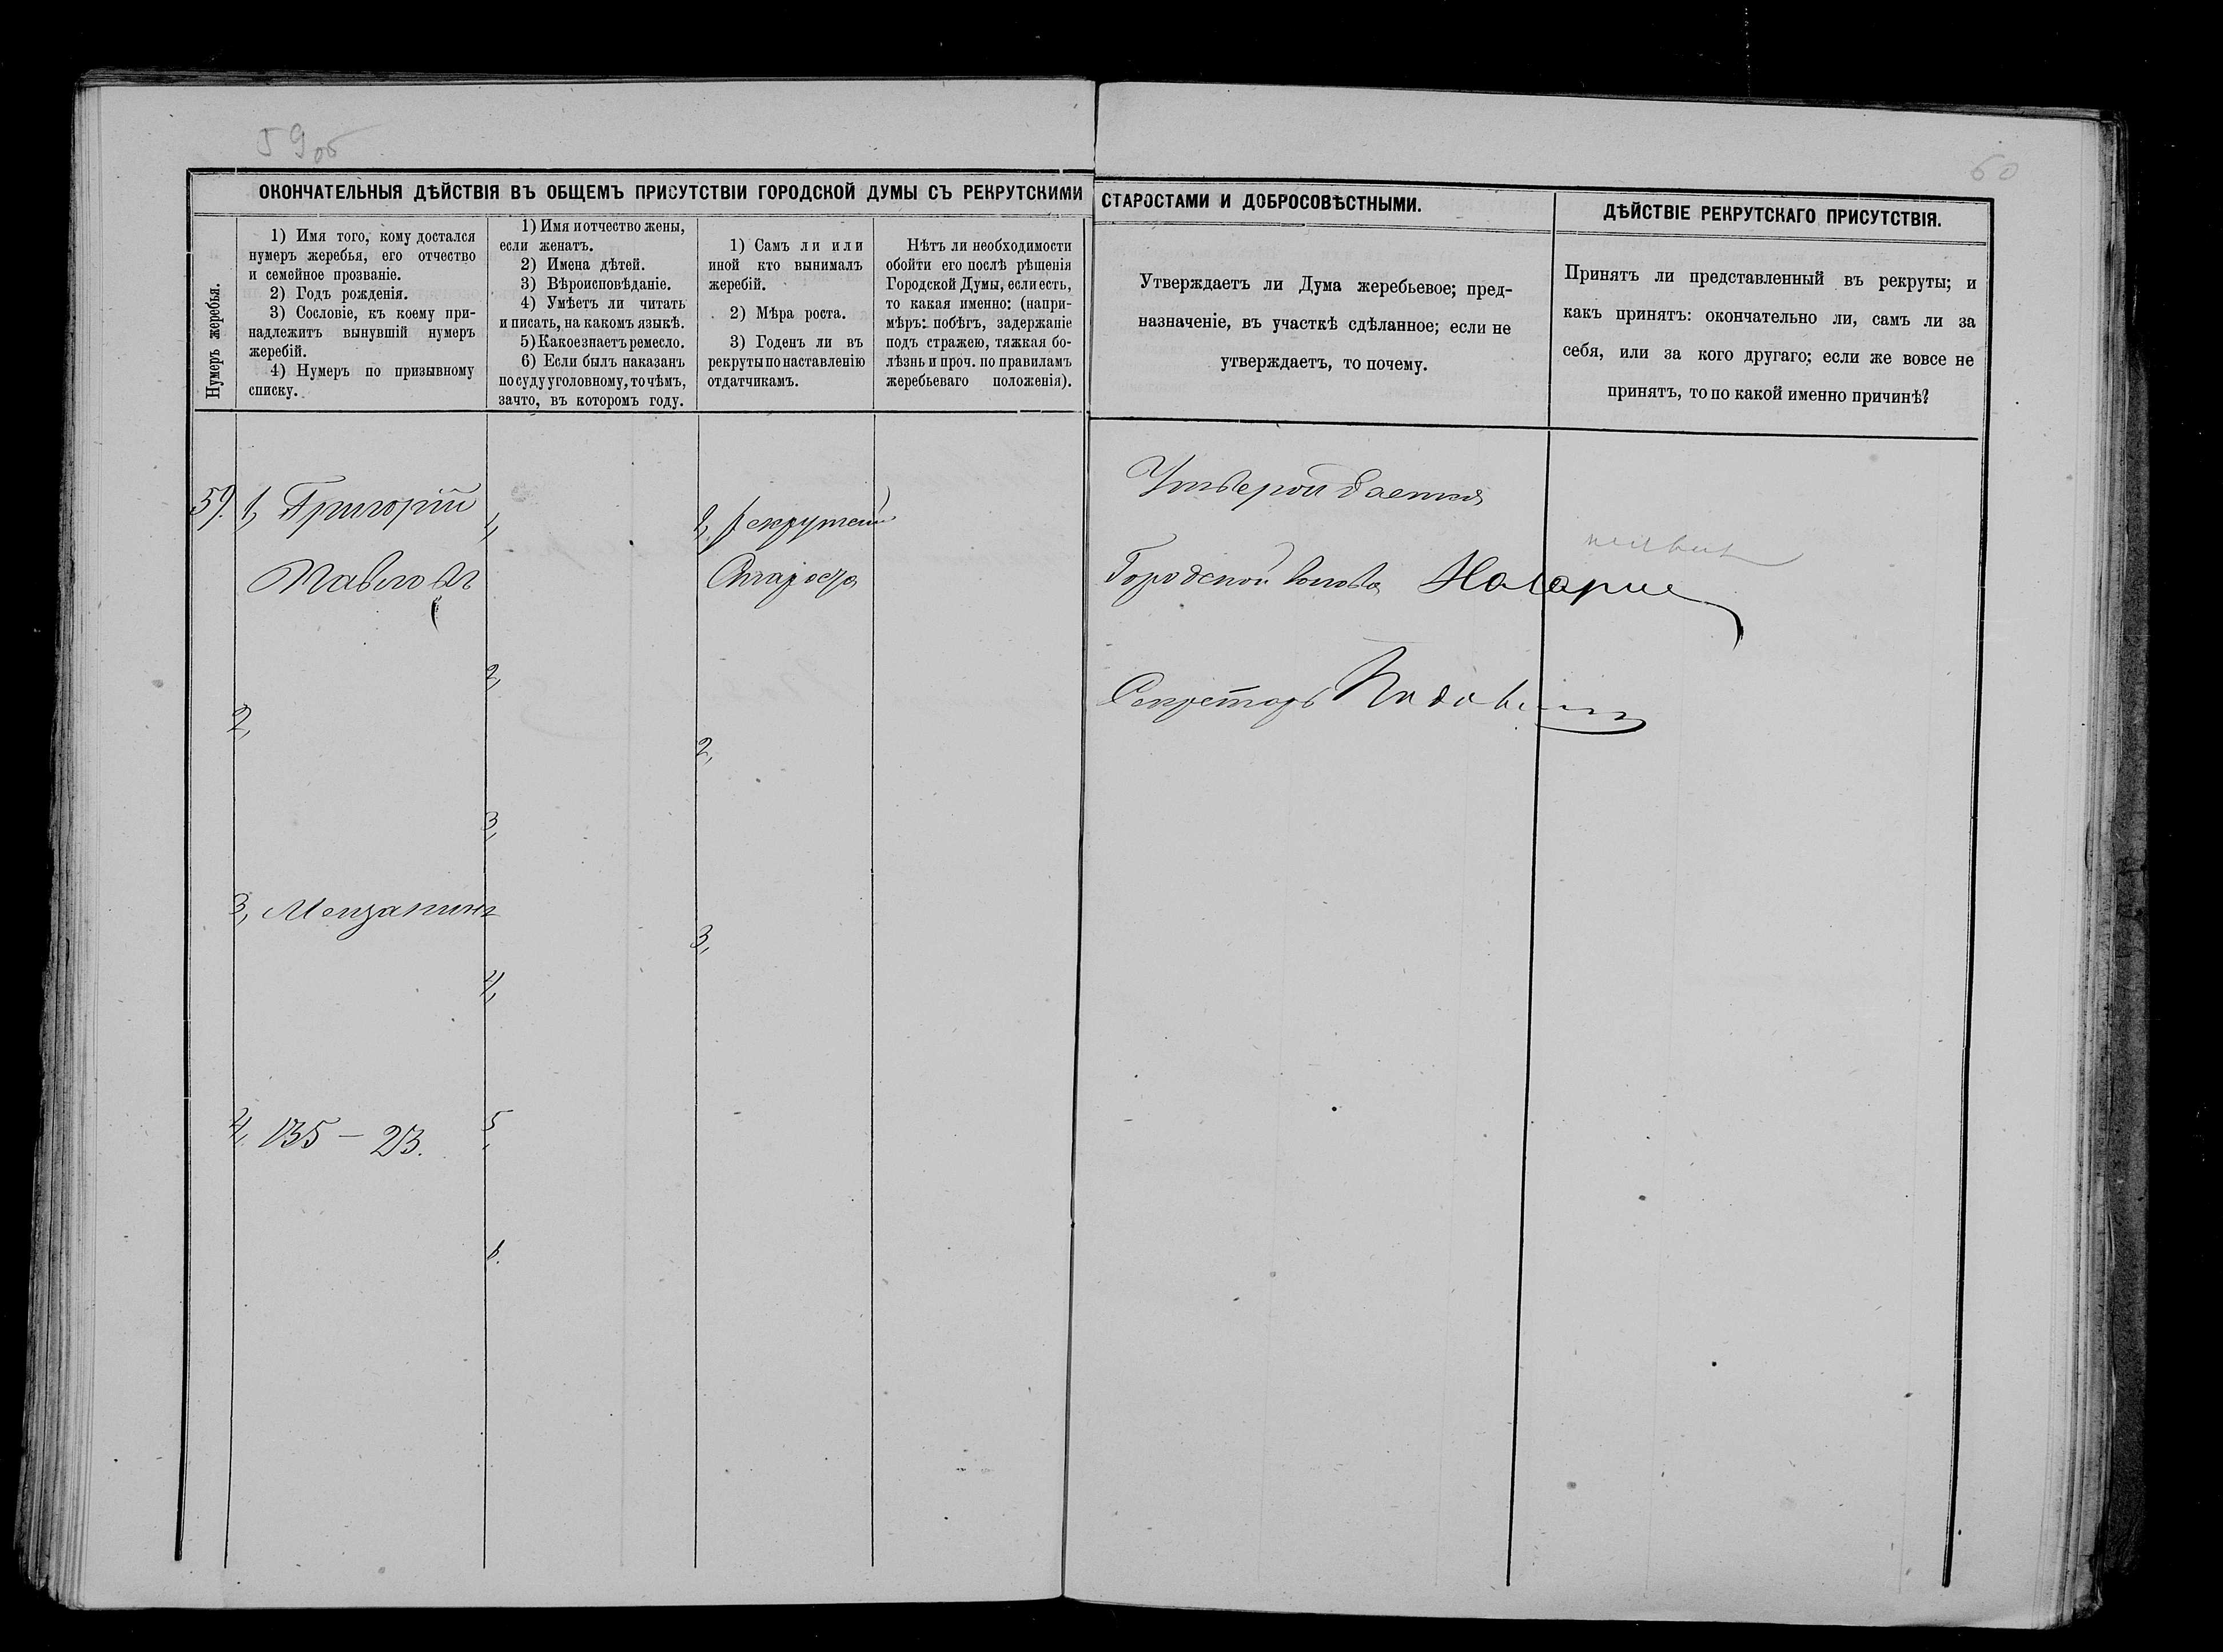 59об
60
ОКОНЧАТЕЛЬНЫЯ ДѢЙСТВІЯ ВЪ ОБЩЕМЪ ПРИСУТСТВІИ ГОРОДСКОЙ ДУМЫ СЪ РЕКРУТСКИМИ
СТАРОСТАМИ И ДОБРОСОВѢСТНЫМИ.
ДѢЙСТВІЕ РЕКРУТСКАГО ПРИСУТСТВІЯ.
Нумеръ жеребья.
1) Имя того, кому достался
нумеръ жеребья, его отчество
и семейное прозваніе.
2) Годъ рожденія.
3) Сословіе, къ коему при-
надлежитъ вынувшій нумеръ
жеребій.
4) Нумеръ по призывному
списку.
1) Имя и отчество жены,
если женатъ.
2) Имена дѣтей.
3) Вѣроисповѣданіе.
4) Умѣетъ ли читать
и писать, на какомъ языкѣ.
5) Какое знаетъ ремесло.
6) Если былъ наказанъ
по суду уголовному, то чѣмъ,
за что, въ которомъ году.
1) Самъ ли или
иной кто вынималъ
жеребій.
2) Мѣра роста.
3) Годенъ ли въ
рекруты по наставленію
отдатчикамъ.
Нѣтъ ли необходимости
обойти его послѣ рѣшенія
Городской Думы, если есть,
то какая именно: (напри-
мѣръ: побѣгъ, задержаніе
подъ стражею, тяжкая бо-
лѣзнь и проч. по правиламъ
жеребьеваго положенія).
Утверждаетъ ли Дума жеребьевое; пред-
назначеніе, въ участкѣ сдѣланное; если не
утверждаетъ, то почему.
Принятъ ли представленный въ рекруты; и
какъ принятъ: окончательно ли, самъ ли за
себя, или за кого другаго; если же вовсе не
принятъ, то по какой именно причинѣ?
59. 1, Григорій
Павловъ
2,
3, Мещанинъ
4, 135 – 23.
1,
2,
3,
4,
5,
6.
1, рекрутскій
Староста
2,
3,
Утверждается
Городской голова
Секретарь